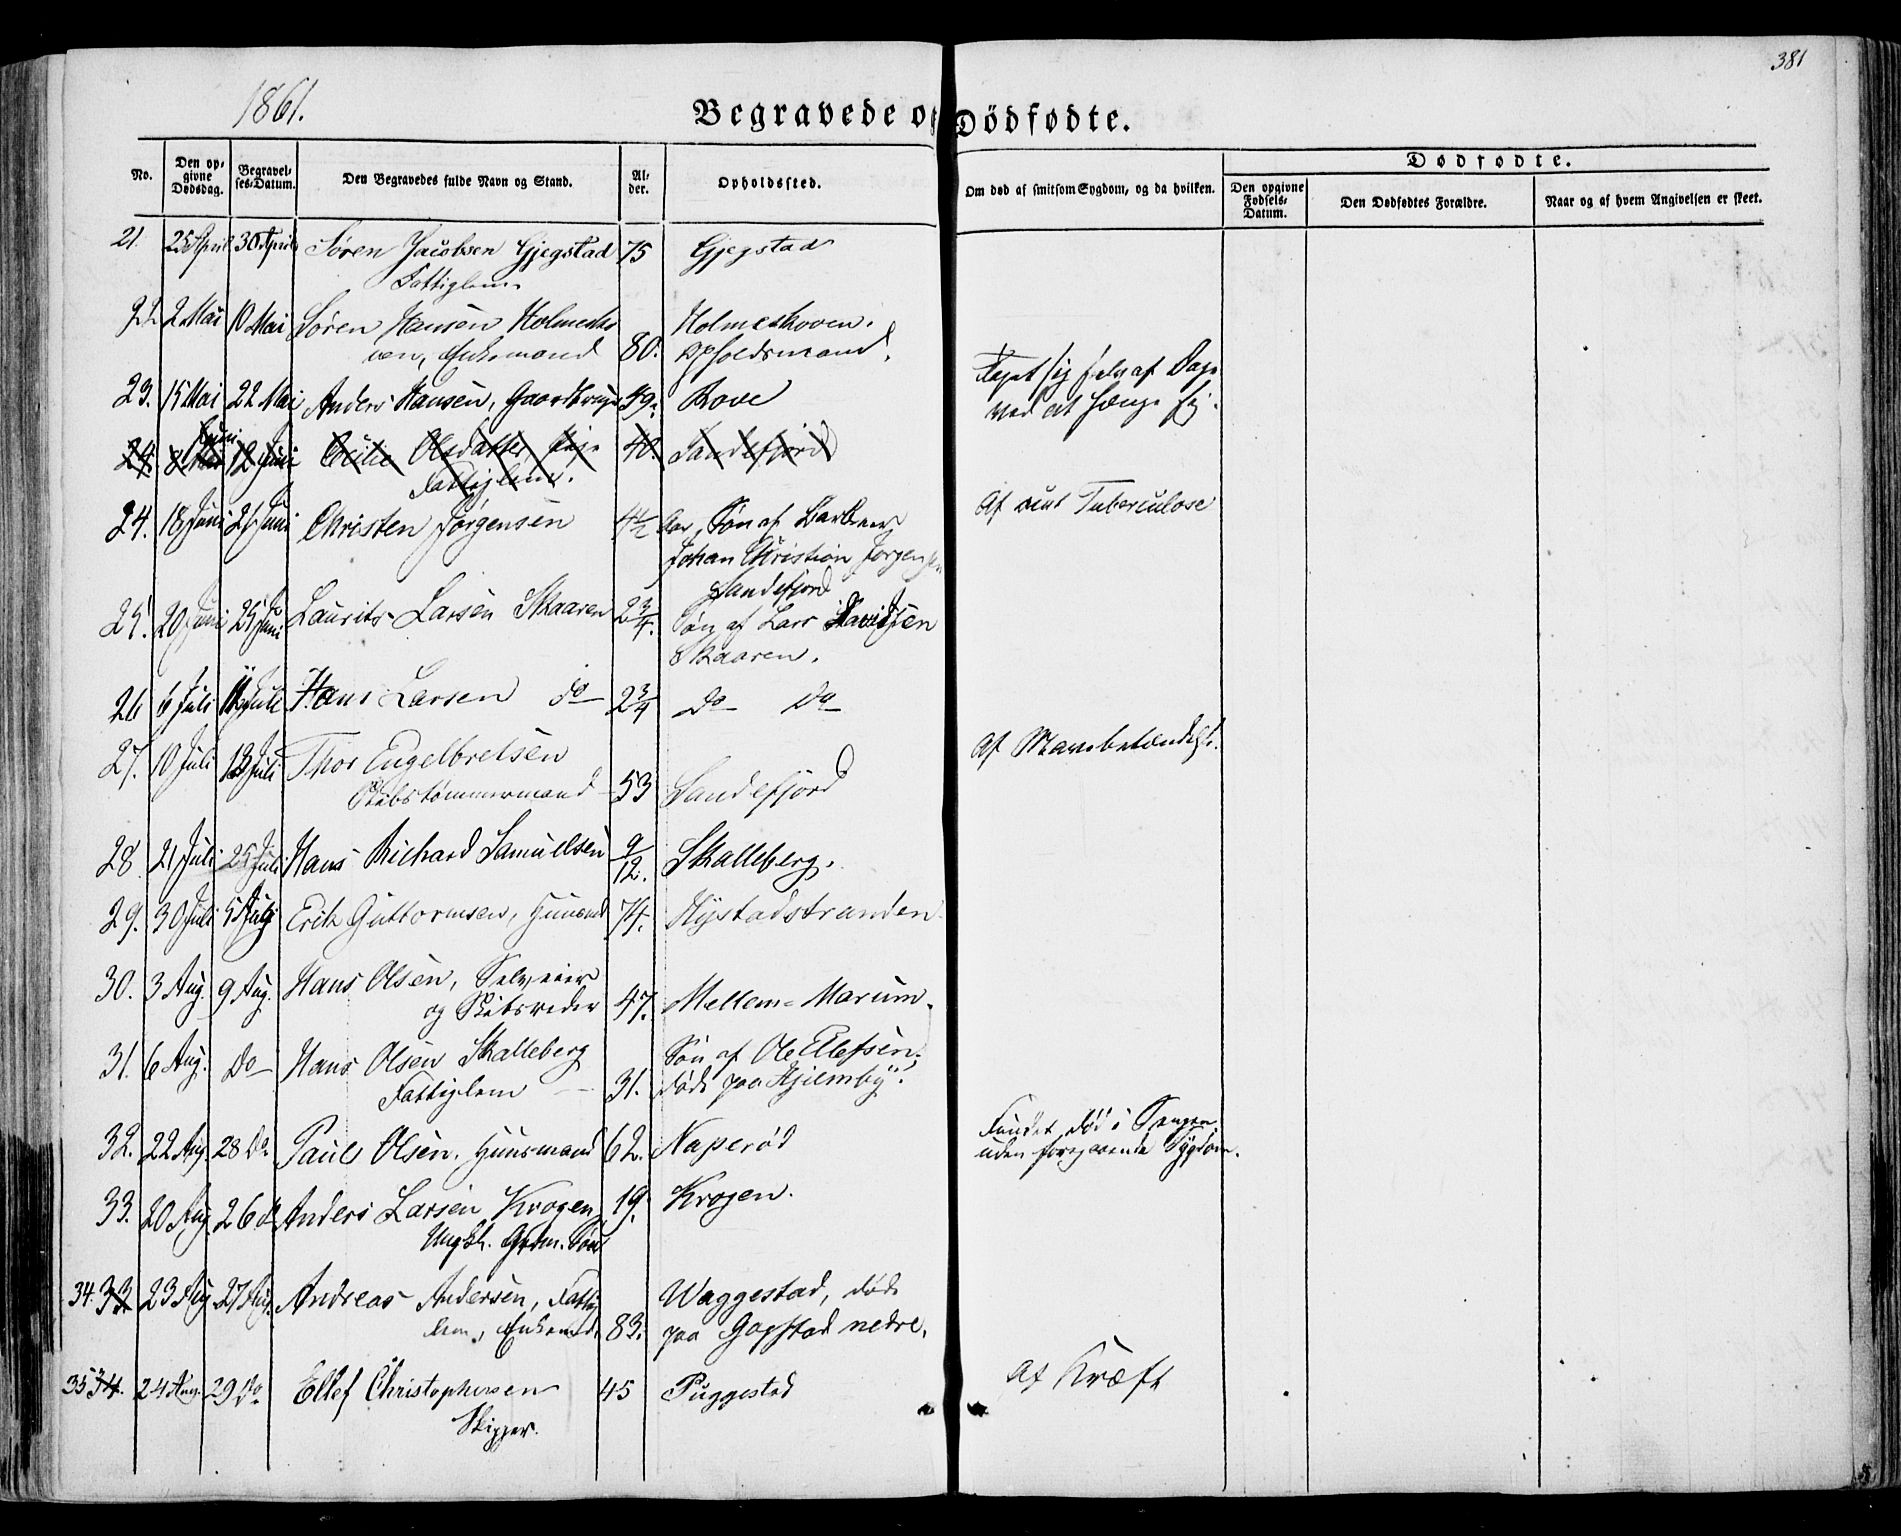 381
1861.
Begravede og Dødfødte.
No.
Den opgivne Dødsdag.
Begravelses-Datum.
Den Begravedes fulde Navn og Stand.
Alder.
Opholdssted.
Om død af smitsom Sygdom, og da hvilken.
Dødfødte.
Den opgivne Fødsels-Datum.
Den Dødfødtes Forældre.
Naar og af hvem Angivelsen er skeet.
21. 25 April 30 April Søren Jacobsen Gjegstad 75 Gjegstad
Fattiglem
22. 2 Mai 10 Mai Søren Hansen Holmesko Holmeskoven.
ven, Enkemand 80. Opholdsmand.
23. 15 Mai 22 Mai Anders Hansen, Gaardbruger 59. Rove Taget sig selv af Dage
ved at hænge sig.
24 8 Juni 12 Juni Cecilie Olsdatter Pige 40. Sandefjord
Fattiglem.
24. 18 Juni 21 Juni Christen Jørgensen 4½ Aar, Søn af Barbeer Af acut Tuberculose
Johan Christian Jørgensen
Sandefjord
25. 20 Juni 25 Juni Laurits Larsen Skaaren 2¾. Søn af Lars Davidsen
Skaaren.
26 6 Juli 11 Juli Hans Larsen do 2¾ Do Do
27. 10 Juli 13 Juli Thor Engelbretsen Af Mavebetændelse.
Skibstømmermand 53 Sandefjord
28 21 Juli 25 Juli Hans Richard Samuelsen 9/12. Skalleberg.
29. 30 Juli 5 Aug Erik Guttormsen, Huusmd 74. Hystadstranden
30. 3 Aug. 9 Aug. Hans Olsen, Selveier
og Skibsreder 47. Mellem-Marum.
31. 6 Aug. Do Hans Olsen Skalleberg Søn af Ole Ellefsen,
Fattiglem 31. døde paa Hjelmby.
32. 22 Aug. 28 Do Paul Olsen, Huusmand 62. Naperød Fundet død i Sengen
uden foregaaende Sygdom.
33. 20 Aug 26 do Anders Larsen Krogen 19. Krogen.
Ungk. Grdm. Søn
34. 33 23 Aug 27 Aug. Andreas Andersen, Fattig Waggestad, døde
lem, Enkemd. 83. paa Gogstad nedre.
35 34. 24 Aug. 29 Do Ellef Christophersen 45 Puggestad Af Kræft
Skipper.